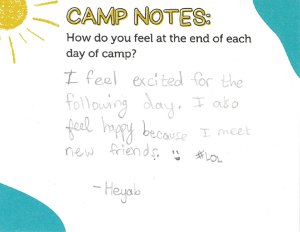 CAMP NOTES:
How do you feel at the end of each
day of camp?
I feel excited for the
following day. I also
feel happy because I meet
new friends. #LOL
- Heyab